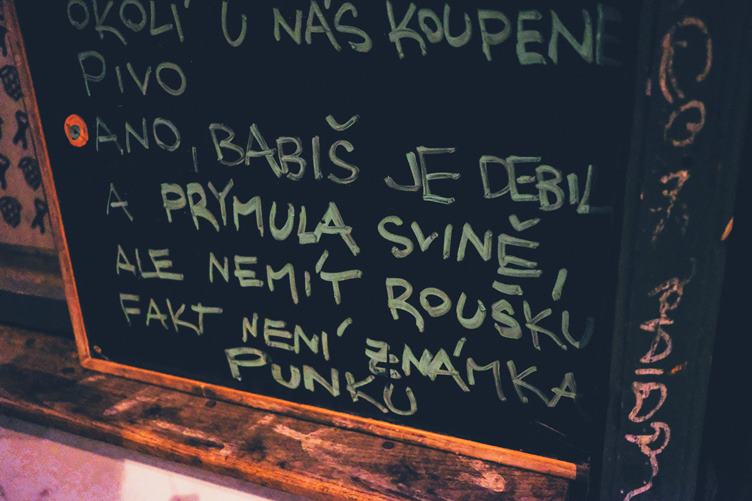 OKOLÍ U NÁS KOUPENE
PIVO
ANO, BABIŠ JE DEBIL
A PRYMULA SVINĚ,
ALE NEMÍT ROUŠKU
FAKT NENÍ ZNÁMKA
PUNKU